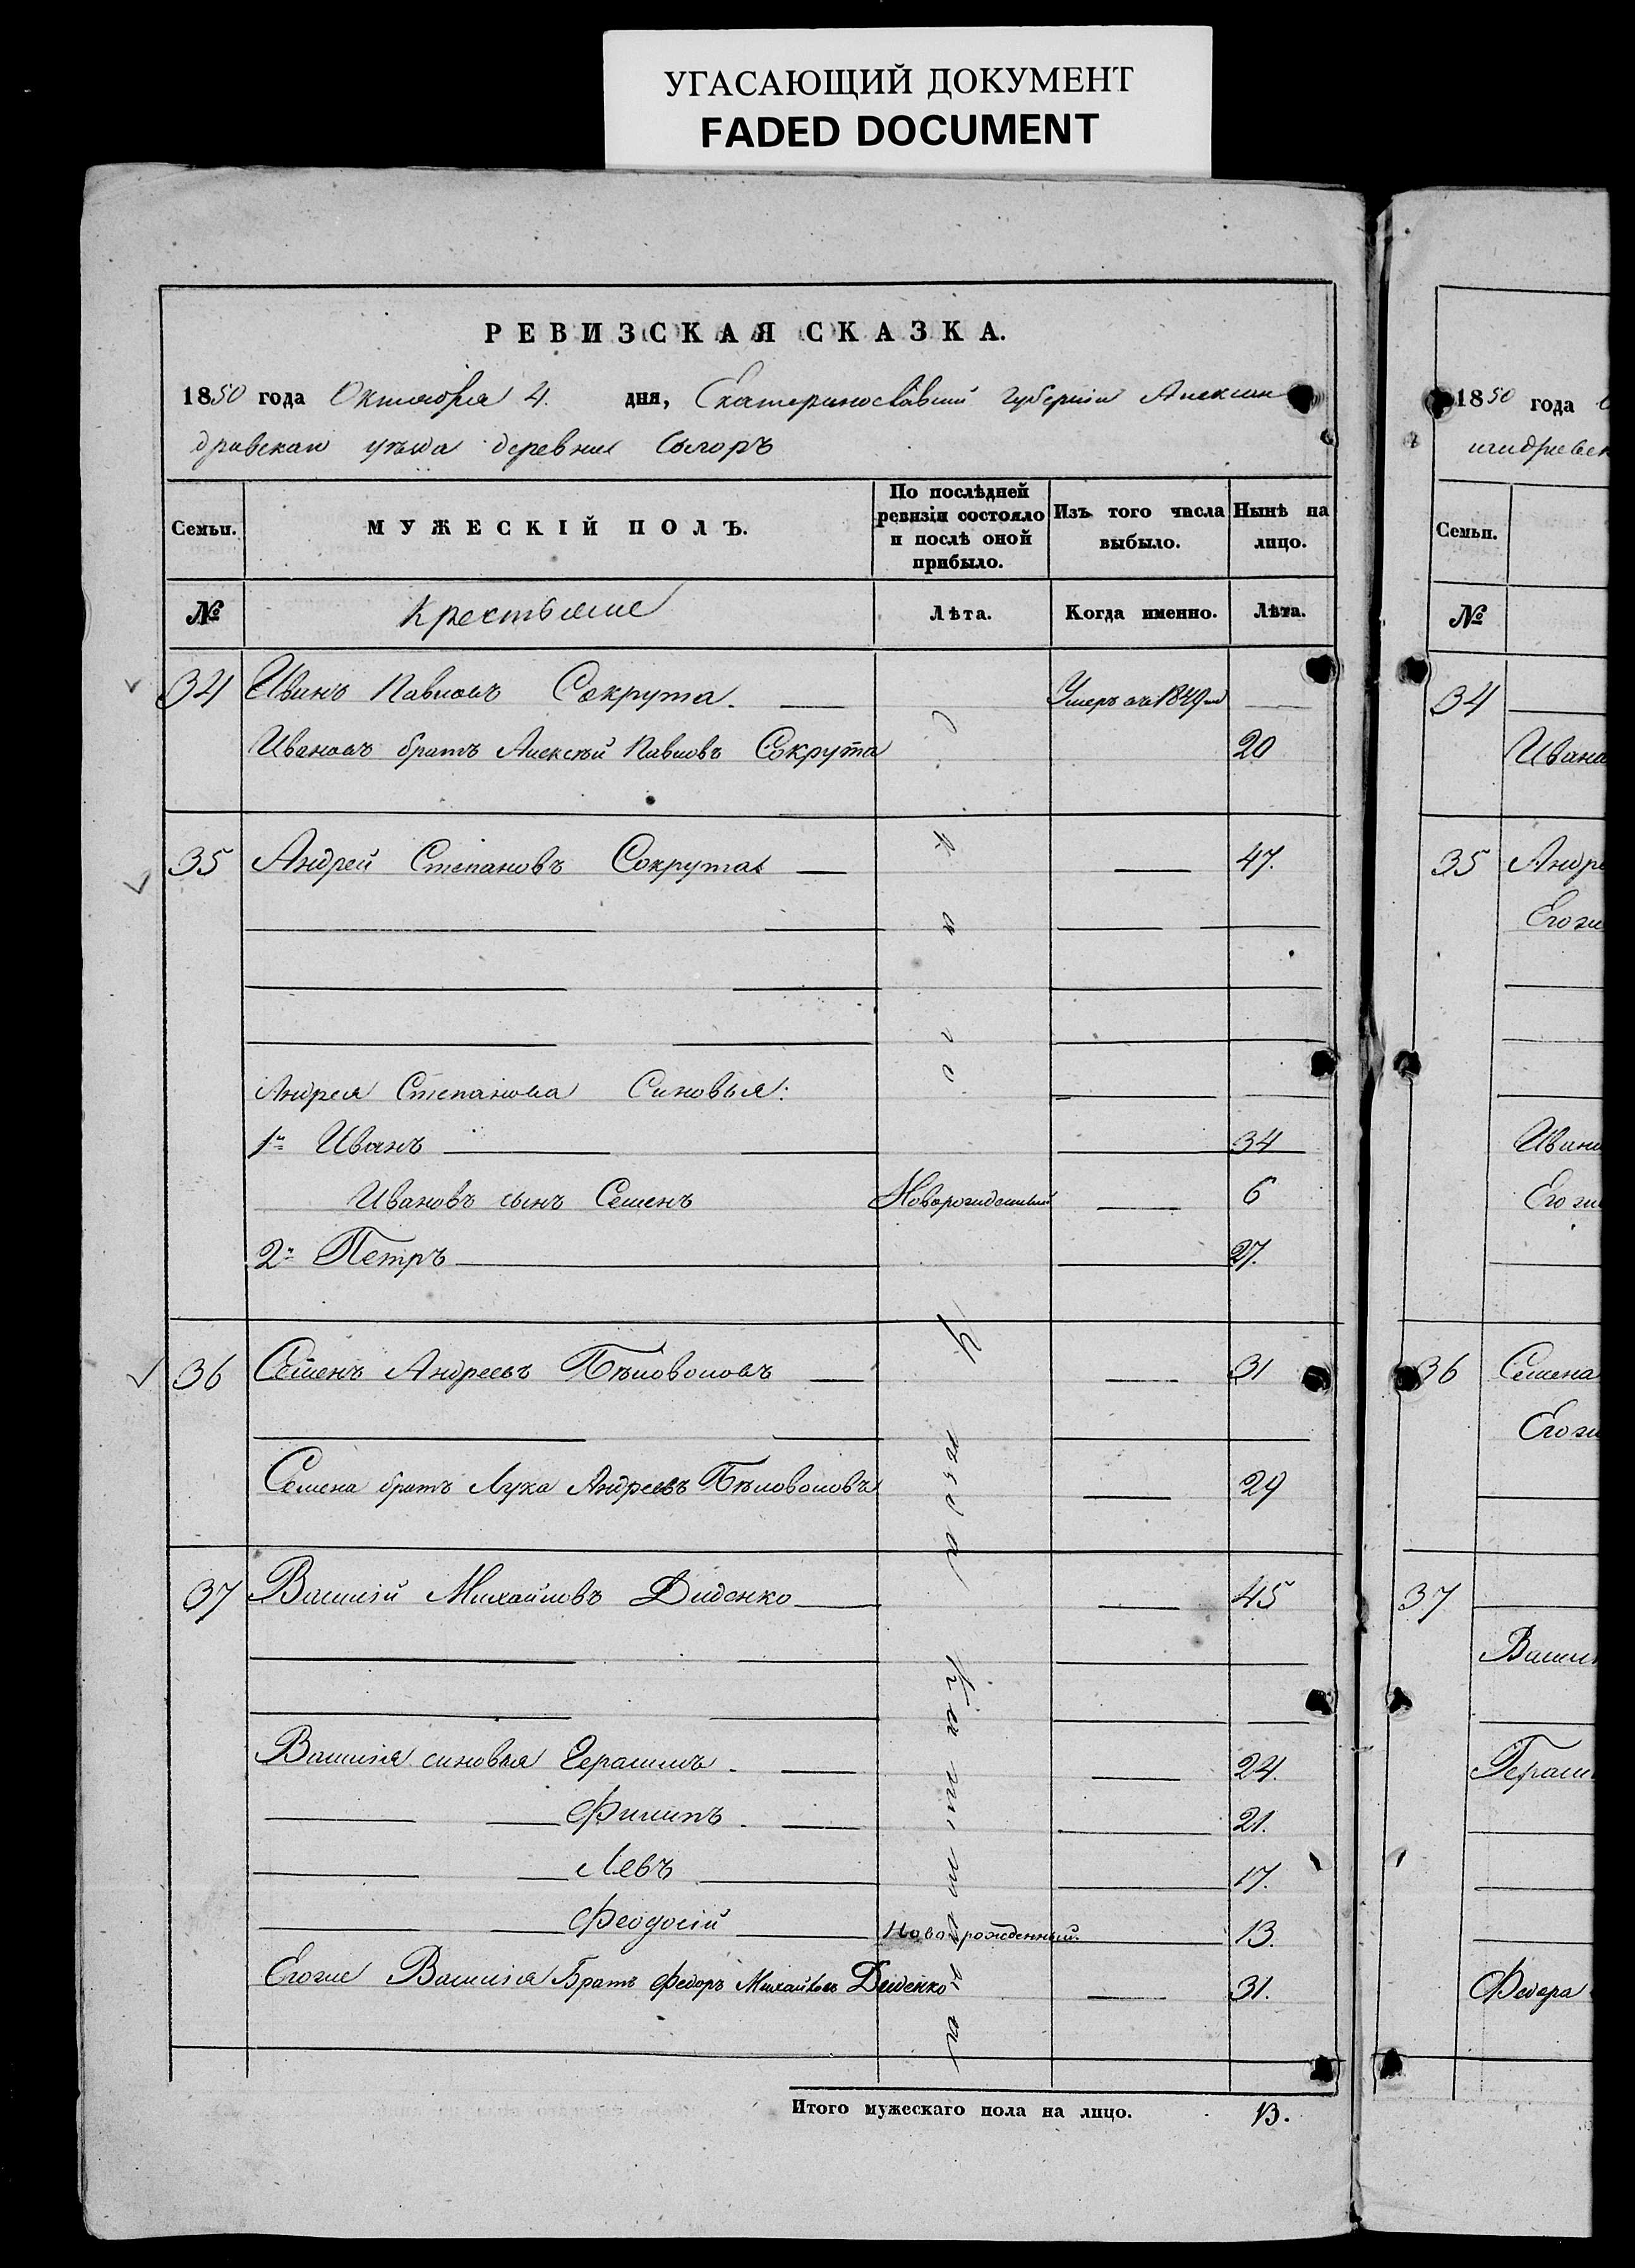 УГАСАЮЩИЙ ДОКУМЕНТ
FADED DOCUMENT
РЕВИЗСКАЯ СКАЗКА.
1850 года Октября 4. дня, Екатеринославской Губернии Алексан
дровскаго уѣзда деревни
Семьи.
МУЖЕСКІЙ ПОЛЪ.
По послѣдней ревизіи состояло и послѣ оной прибыло.
Изъ того числа выбыло.
Нынѣ на лицо.
№ Крестьяне Лѣта. Когда именно. Лѣта.
34 Иванъ Павловъ Сокрута. Умеръ въ 1849
Ивановъ братъ Алексѣй Павловъ Сокрута 20
35 Андрей Степановъ Сокрута 47.
Андрея Степанова Синовья:
1й Иванъ 34
Ивановъ сынъ Семенъ Новорожденный 6
2й Петръ 27.
36 Семенъ Андреевъ Бѣловоловъ 31
Семена братъ Лука Андреевъ Бѣловоловъ 29
37 Василій Михайловъ Диденко 45
Василія синовья Герасимъ. 24.
Филипъ. 21.
Левъ 17.
Феодосій Новорожденный. 13.
Егоже Василія Братъ Федоръ Михайловъ Диденко 31.
Итого мужескаго пола на лицо. 13.
1850 года
Семьи.
№
34
Ивана
35 Андре
Егоже
Ивана
Егоже
36 Семена
Егоже
37
Васили
Гераси
Федора